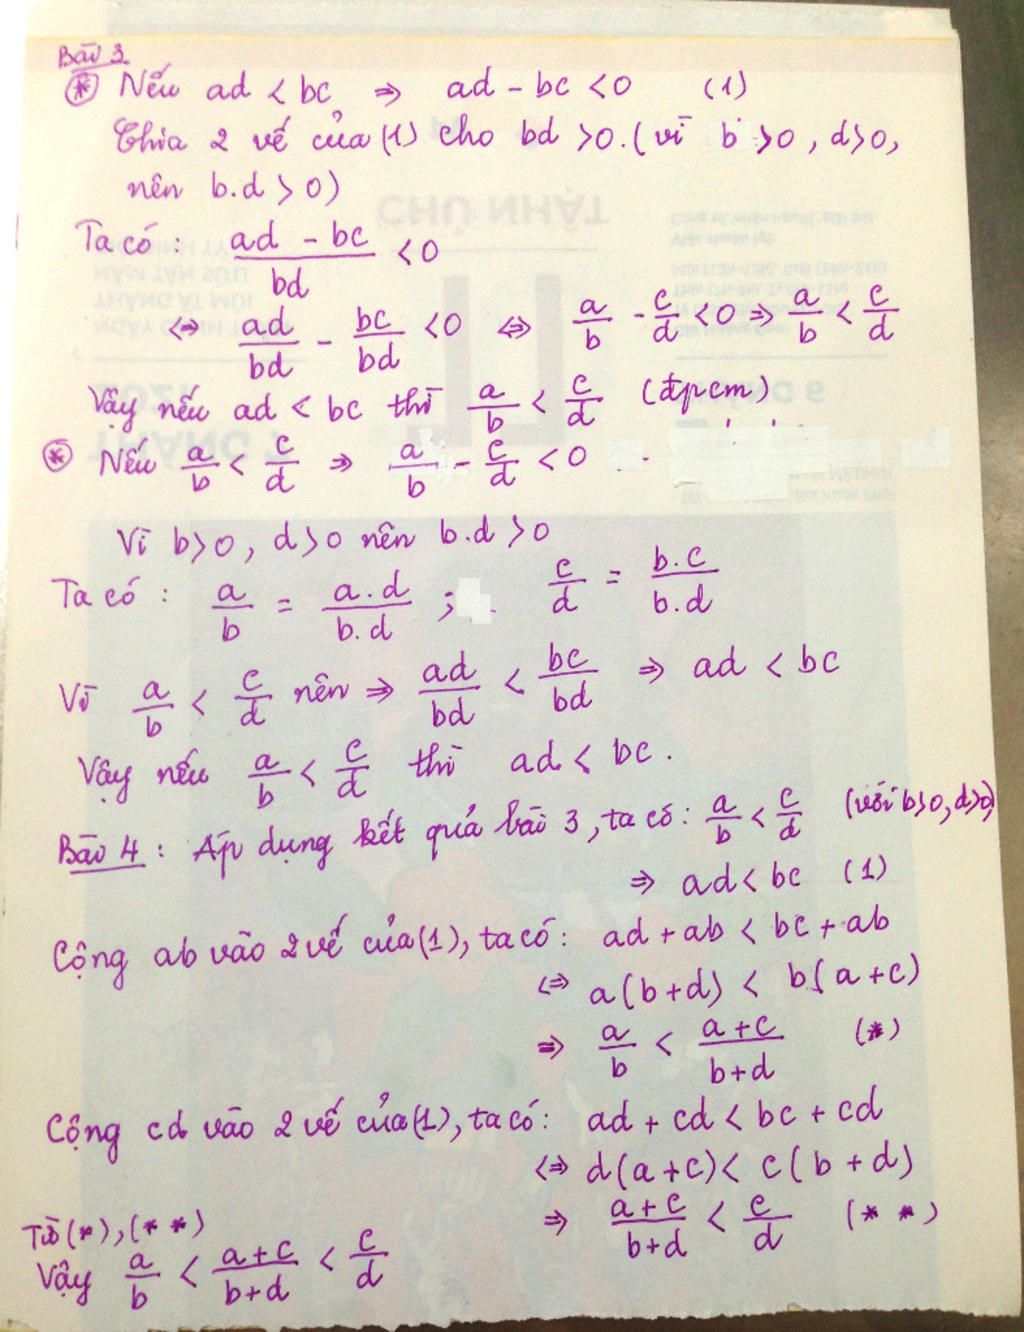 Bài 3
* Nếu ad < bc ⇒ ad - bc < 0 (1)
Chia 2 vế của (1) cho bd > 0. (vì b > 0, d > 0,
nên b.d > 0)
Ta có: (ad - bc)/bd < 0
⇔ ad/bd - bc/bd < 0 ⇔ a/b - c/d < 0 ⇒ a/b < c/d
Vậy nếu ad < bc thì a/b < c/d (đpcm)
* Nếu a/b < c/d ⇒ a/b - c/d < 0
Vì b > 0, d > 0 nên b.d > 0
Ta có: a/b = a.d/b.d ; c/d = b.c/b.d
Vì a/b < c/d nên ⇒ ad/bd < bc/bd ⇒ ad < bc
Vậy nếu a/b < c/d thì ad < bc.
Bài 4: Áp dụng kết quả bài 3, ta có: a/b < c/d (với b>0, d>0)
⇒ ad < bc (1)
Cộng ab vào 2 vế của (1), ta có: ad + ab < bc + ab
⇔ a(b+d) < b(a+c)
⇒ a/b < (a+c)/(b+d) (*)
Cộng cd vào 2 vế của (1), ta có: ad + cd < bc + cd
⇔ d(a+c) < c(b+d)
⇒ (a+c)/(b+d) < c/d (**)
Từ (*), (**)
Vậy a/b < (a+c)/(b+d) < c/d